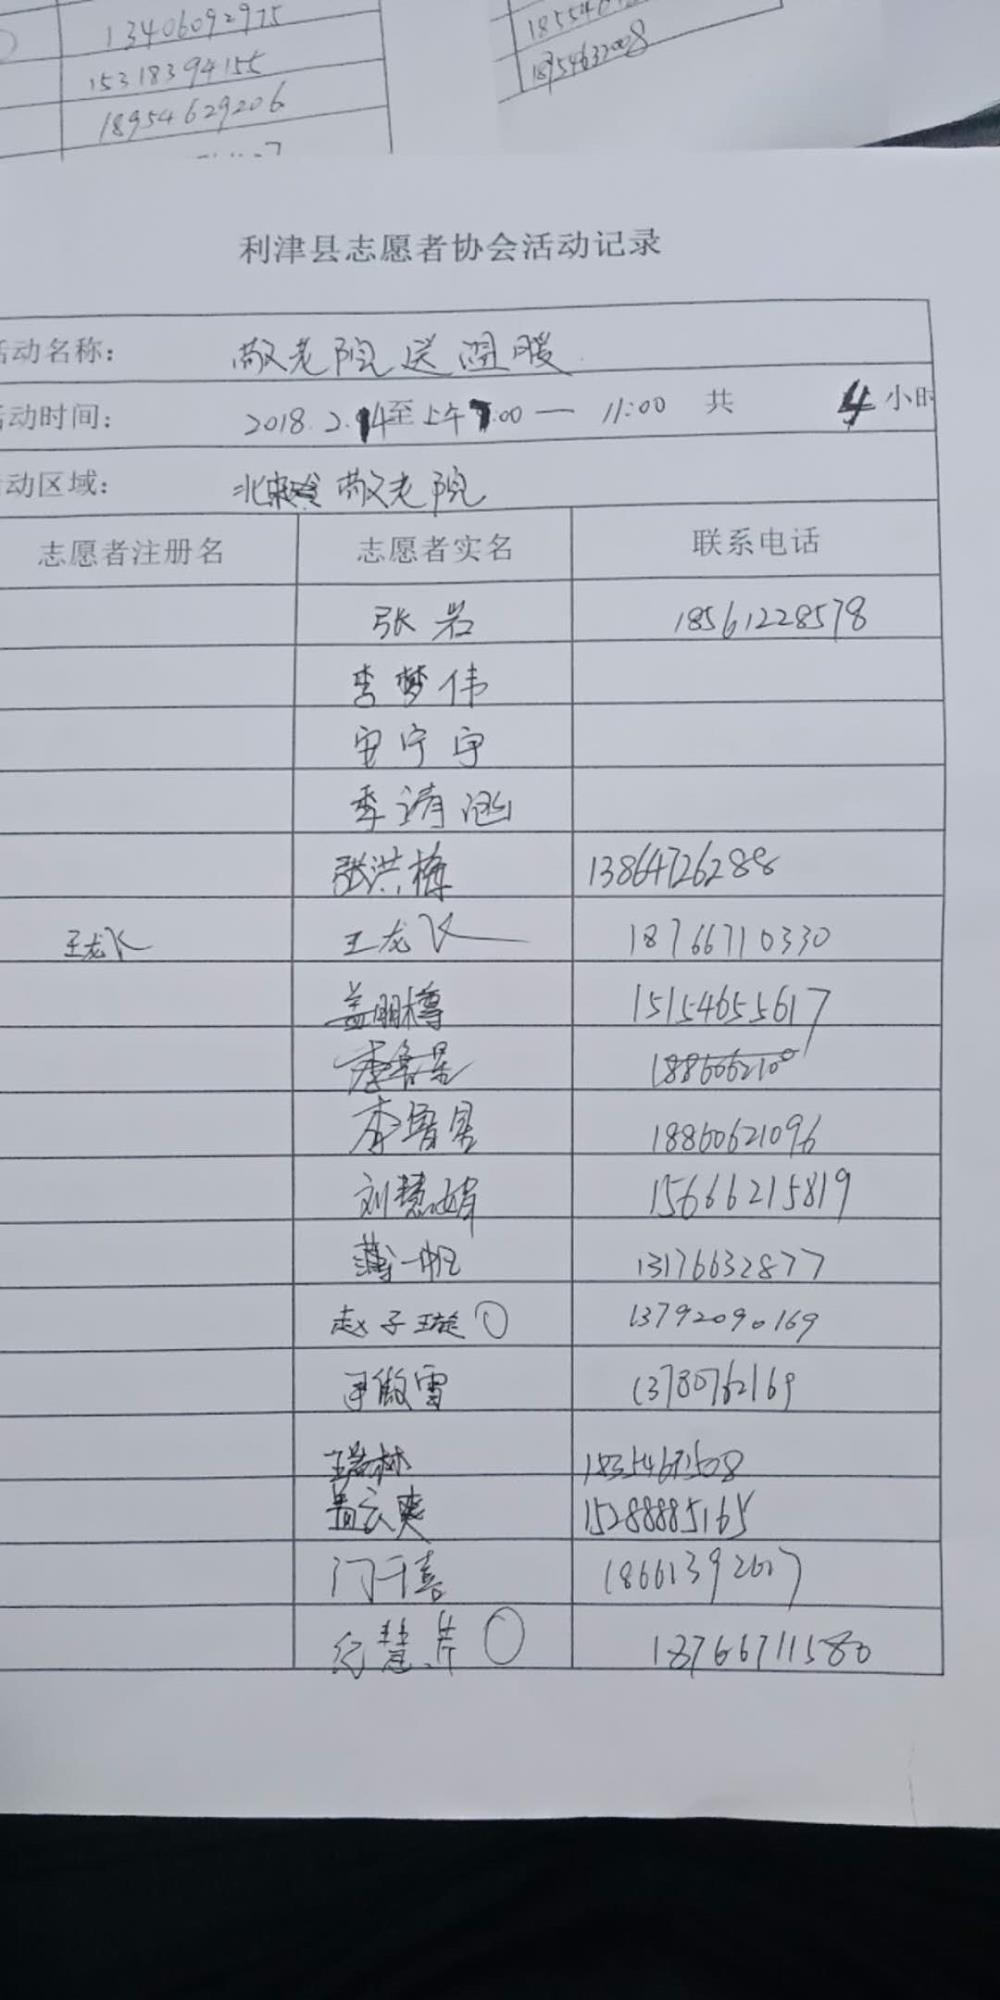 13406092975
15318394155
18954629206
18954632008
利津县志愿者协会活动记录
活动名称: 敬老院送温暖
活动时间: 2018.2.14至上午7:00 — 11:00 共 4 小时
动区域: 北宋 敬老院
志愿者注册名 志愿者实名 联系电话
张岩 18561228578
李梦伟
安宁宇
季清涵
张洪梅 13864726288
王龙飞 王龙飞 18766710330
盖明樽 15154655617
李鲁昱 1886062100
李鲁昱 18860621096
刘慧娟 15666215819
薄一帆 13176632877
赵子璇 ① 13792090169
傲雪 13780762169
王瑞林
尚云爽 15288885165
门千喜 18661392617
纪慧芹 18766711580